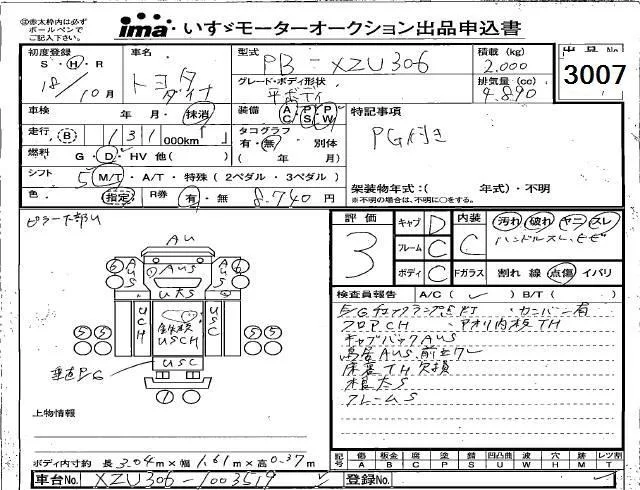 ※赤太枠内は必ず
ボールペンで
ご記入下さい。
ima いすゞモーターオークション出品申込書
初度登録 S・H・R 18/10月
車名 トヨタ ダイナ
型式 PB-XZU306
積載 (kg) 2,000
出品No 3007
グレード・ボディ形状 平ボディ
排気量 (cc) 4.890
車検 年 月・抹消
装備 AC PS PW
特記事項
PG付き
走行 B 131 000km「 」
タコグラフ 有・無 別体 ( 年 月)
燃料 G・D・HV 他( )
シフト 5 M/T・A/T・特殊 (2ペダル・3ペダル)
架装物年式:( 年式)・不明
※不明の場合は、不明に○をする。
色 指定 R券 有・無 8.740 円
ピラー下部U
評価 3
キャブ D
フレーム C
ボディ C
内装 C
汚れ 破れ ヤニ スレ
ハンドルスレ、ヒビ
Fガラス 割れ 線 点傷 イバリ
検査員報告 A/C( ✓ ) B/T( )
AU
AUS
UタS
UCH
鉄板
USCH
USC
垂直PG
E/Gチェックランプ点灯 ・カンバン有
フロアCH ・アオリ内板TH
キャブバックAUS
鳥居AUS
床裏TH欠損
根太S
フレームS
上物情報
ボディ内寸約 長3.04m×幅1.61m×高0.37m
記号 傷A 板金B 腐C 塗P 錆S 凹凸曲U 波W 穴H 跡M レツ割T
車台No. XZU306-1003519
登録No.